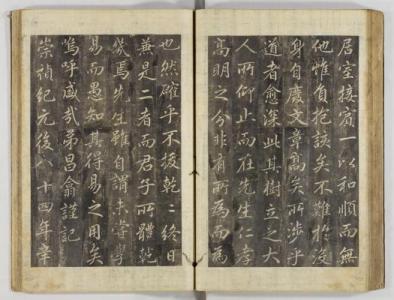 居室接賓一以和順而無
他惟負抱該矣不難於決
身自廢文章高矣所涉乎
道者愈深此其樹立之大
人所仰止而在先生仁孝
高明之分非有所為而為
也然確乎不拔乾乾終日
兼是二者而君子所體乾
焉先生雖自謂未嘗學
易而愚知其得易之用矣
嗚呼盛哉弟昌翕謹記
崇禎紀元後八十四年辛